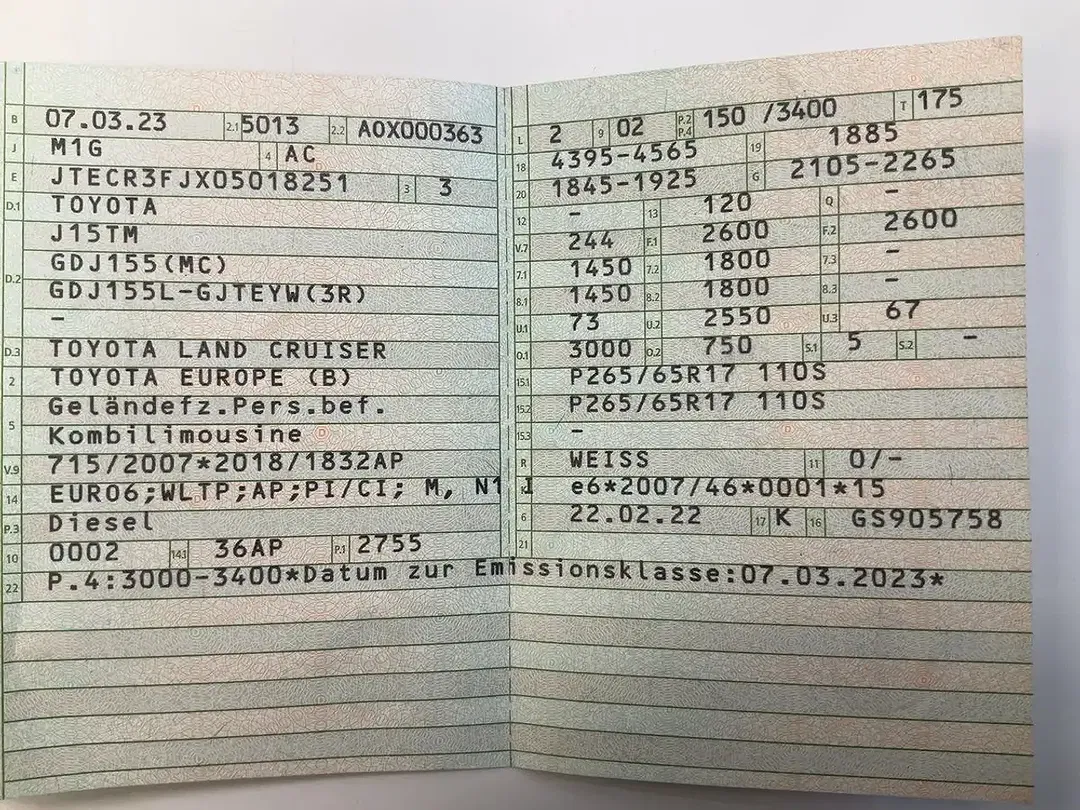 B 07.03.23 2.1 5013 2.2 A0X000363
J M1G 4 AC
E JTECR3FJX05018251 3 3
D.1 TOYOTA
J15TM
D.2 GDJ155(MC)
GDJ155L-GJTEYW(3R)
–
D.3 TOYOTA LAND CRUISER
2 TOYOTA EUROPE (B)
5 Geländefz.Pers.bef.
Kombilimousine
V.9 715/2007*2018/1832AP
14 EURO6;WLTP;AP;PI/CI; M, N1 I
P.3 Diesel
10 0002 14.1 36AP P.1 2755
22 P.4:3000-3400*Datum zur Emissionsklasse:07.03.2023*
L 2 9 02 P.2 P.4 150 /3400 T 175
18 4395-4565 19 1885
20 1845-1925 G 2105-2265
12 – 13 120 Q –
V.7 244 F.1 2600 F.2 2600
7.1 1450 7.2 1800 7.3 –
8.1 1450 8.2 1800 8.3 –
U.1 73 U.2 2550 U.3 67
O.1 3000 O.2 750 S.1 5 S.2 –
15.1 P265/65R17 110S
15.2 P265/65R17 110S
15.3 –
R WEISS 11 0/–
K e6*2007/46*0001*15
6 22.02.22 17 K 16 GS905758
21